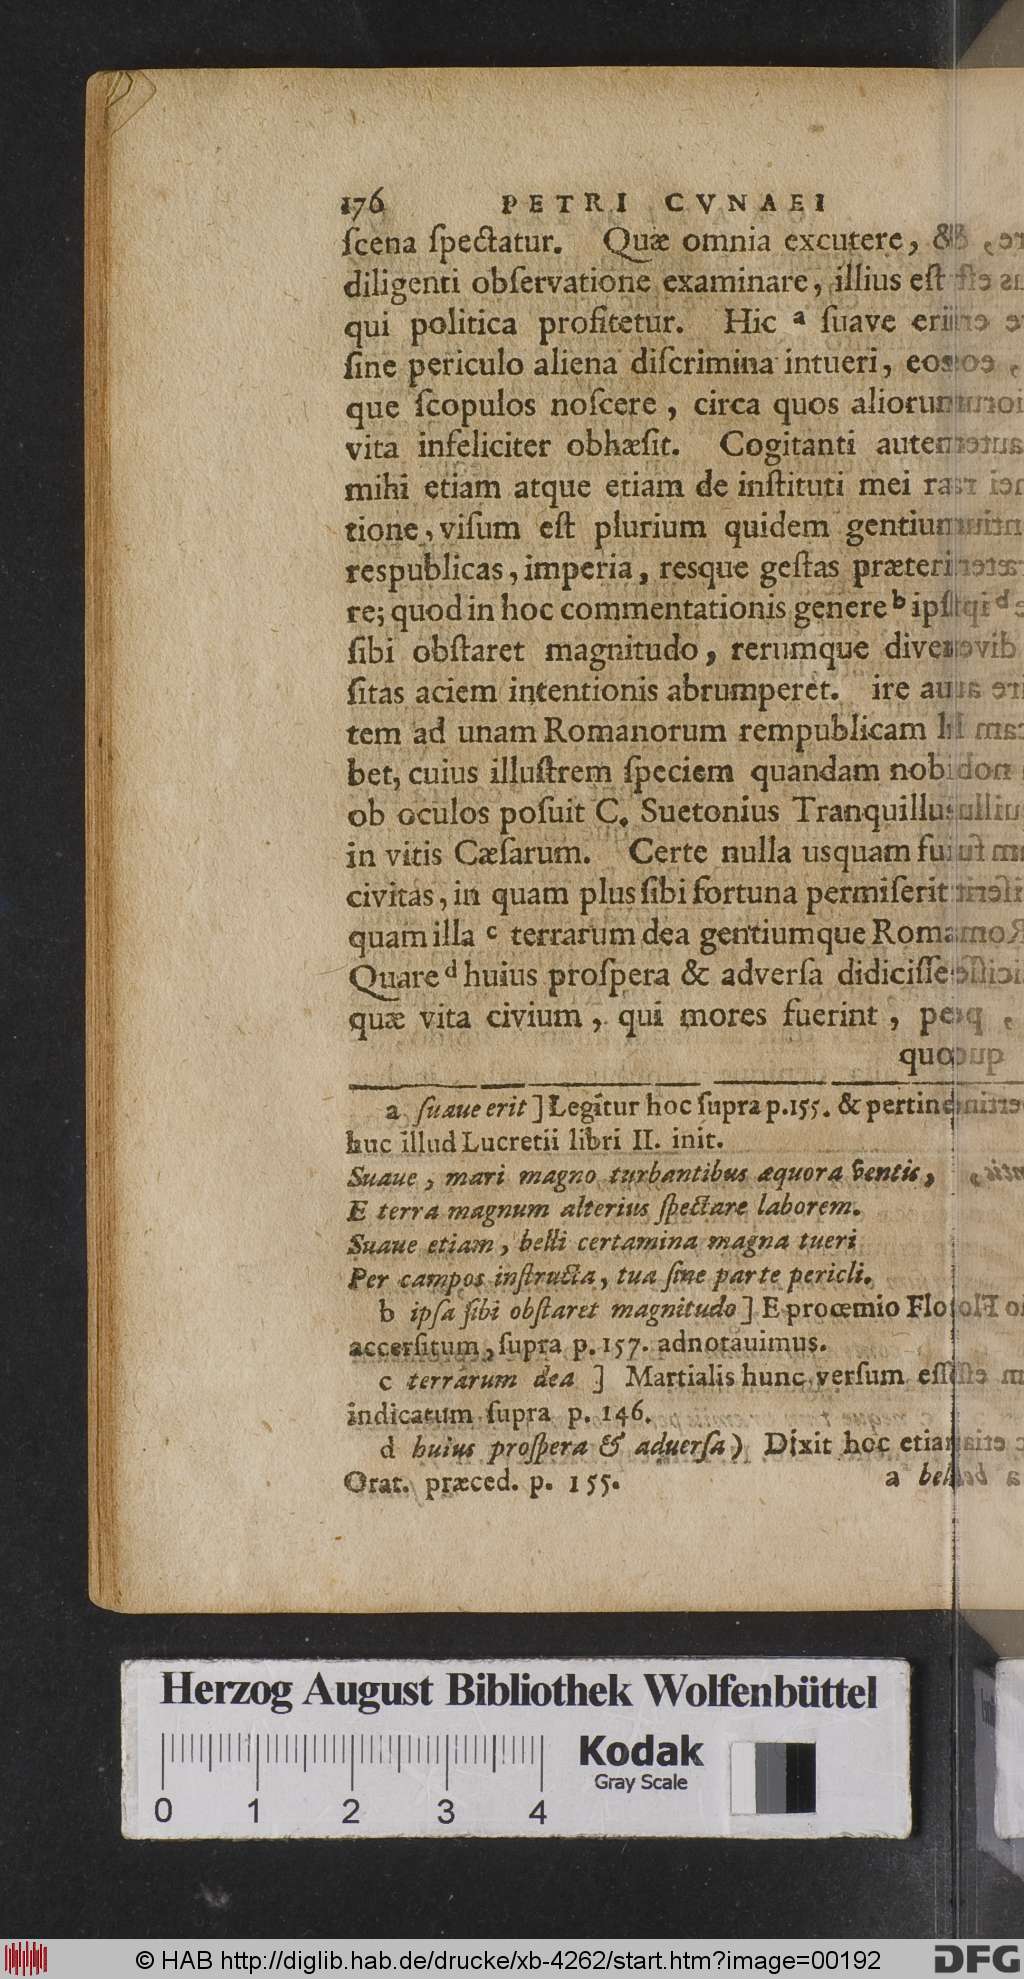 176 PETRI CVNAEI
ſcena ſpectatur. Quæ omnia excutere, &
diligenti obſervatione examinare, illius eſt
qui politica profitetur. Hic a ſuave erit
ſine periculo aliena diſcrimina intueri, eos-
que ſcopulos noſcere, circa quos aliorum
vita infeliciter obhæſit. Cogitanti autem
mihi etiam atque etiam de inſtituti mei ra-
tione, viſum eſt plurium quidem gentium
respublicas, imperia, resque geſtas præteri-
re; quod in hoc commentationis genere b ipſa
ſibi obſtaret magnitudo, rerumque diver-
ſitas aciem intentionis abrumperet. ire au-
tem ad unam Romanorum rempublicam li-
bet, cuius illuſtrem ſpeciem quandam nobis
ob oculos poſuit C. Suetonius Tranquillus
in vitis Cæſarum. Certe nulla usquam fuit
civitas, in quam plus ſibi fortuna permiſerit
quam illa c terrarum dea gentiumque Roma
Quare d huius proſpera & adverſa didiciſſe
quæ vita civium, qui mores fuerint, per
quo
a ſuaue erit ] Legitur hoc ſupra p. 155. & pertinet
huc illud Lucretii libri II. init.
Suaue, mari magno turbantibus æquora ventis,
E terra magnum alterius ſpectare laborem.
Suaue etiam, belli certamina magna tueri
Per campos inſtructa, tua ſine parte pericli.
b ipſa ſibi obſtaret magnitudo ] E prœmio Flo
accerſitum, ſupra p. 157. adnotauimus.
c terrarum dea ] Martialis hunc verſum eſſe
indicatum ſupra p. 146.
d huius proſpera & aduerſa) Dixit hoc etiam
Orat. præced. p. 155. a bel
Herzog August Bibliothek Wolfenbüttel
Kodak
Gray Scale
0 1 2 3 4
© HAB http://diglib.hab.de/drucke/xb-4262/start.htm?image=00192 DFG